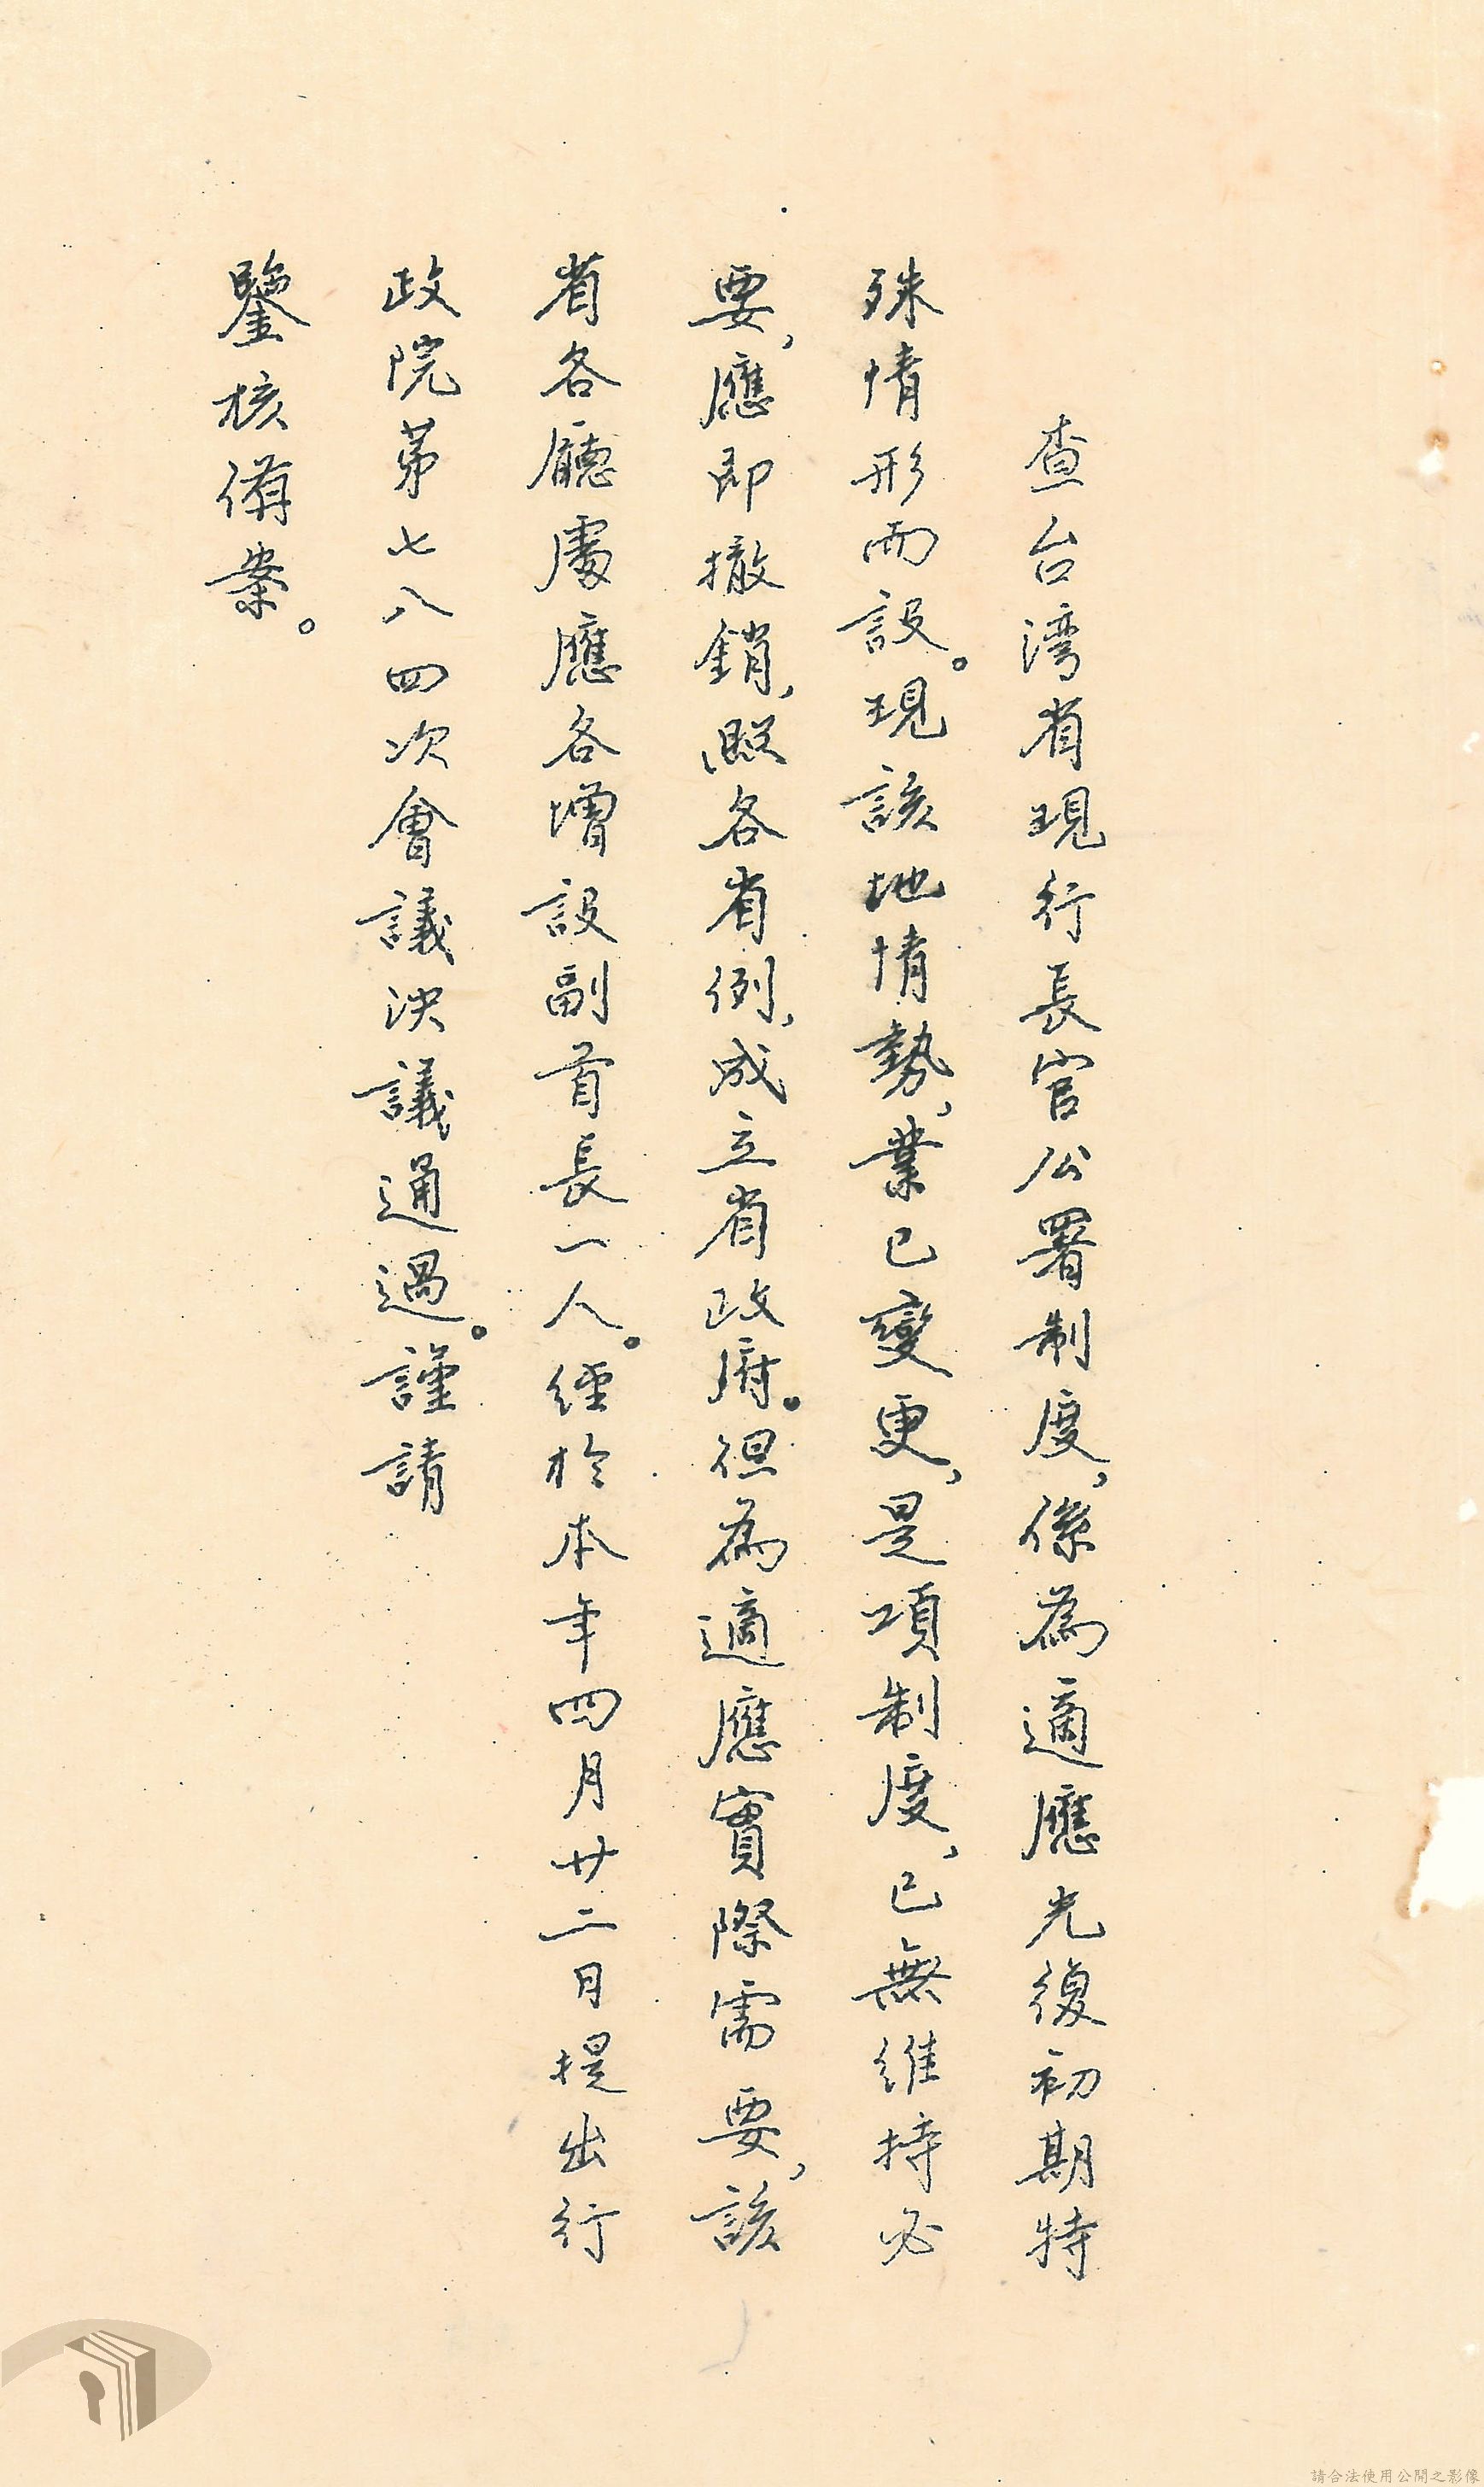 查台湾省現行長官公署制度，係為適應光復初期特
殊情形而設。現該地情勢，業已變更，是項制度，已無維持必
要，應即撤銷，照各省例，成立省政府。但為適應實際需要，該
省各廳處應各增設副首長一人。經於本年四月廿二日提出行
政院第七八四次會議決議通過。謹請
鑒核備案。
請合法使用公開之影像